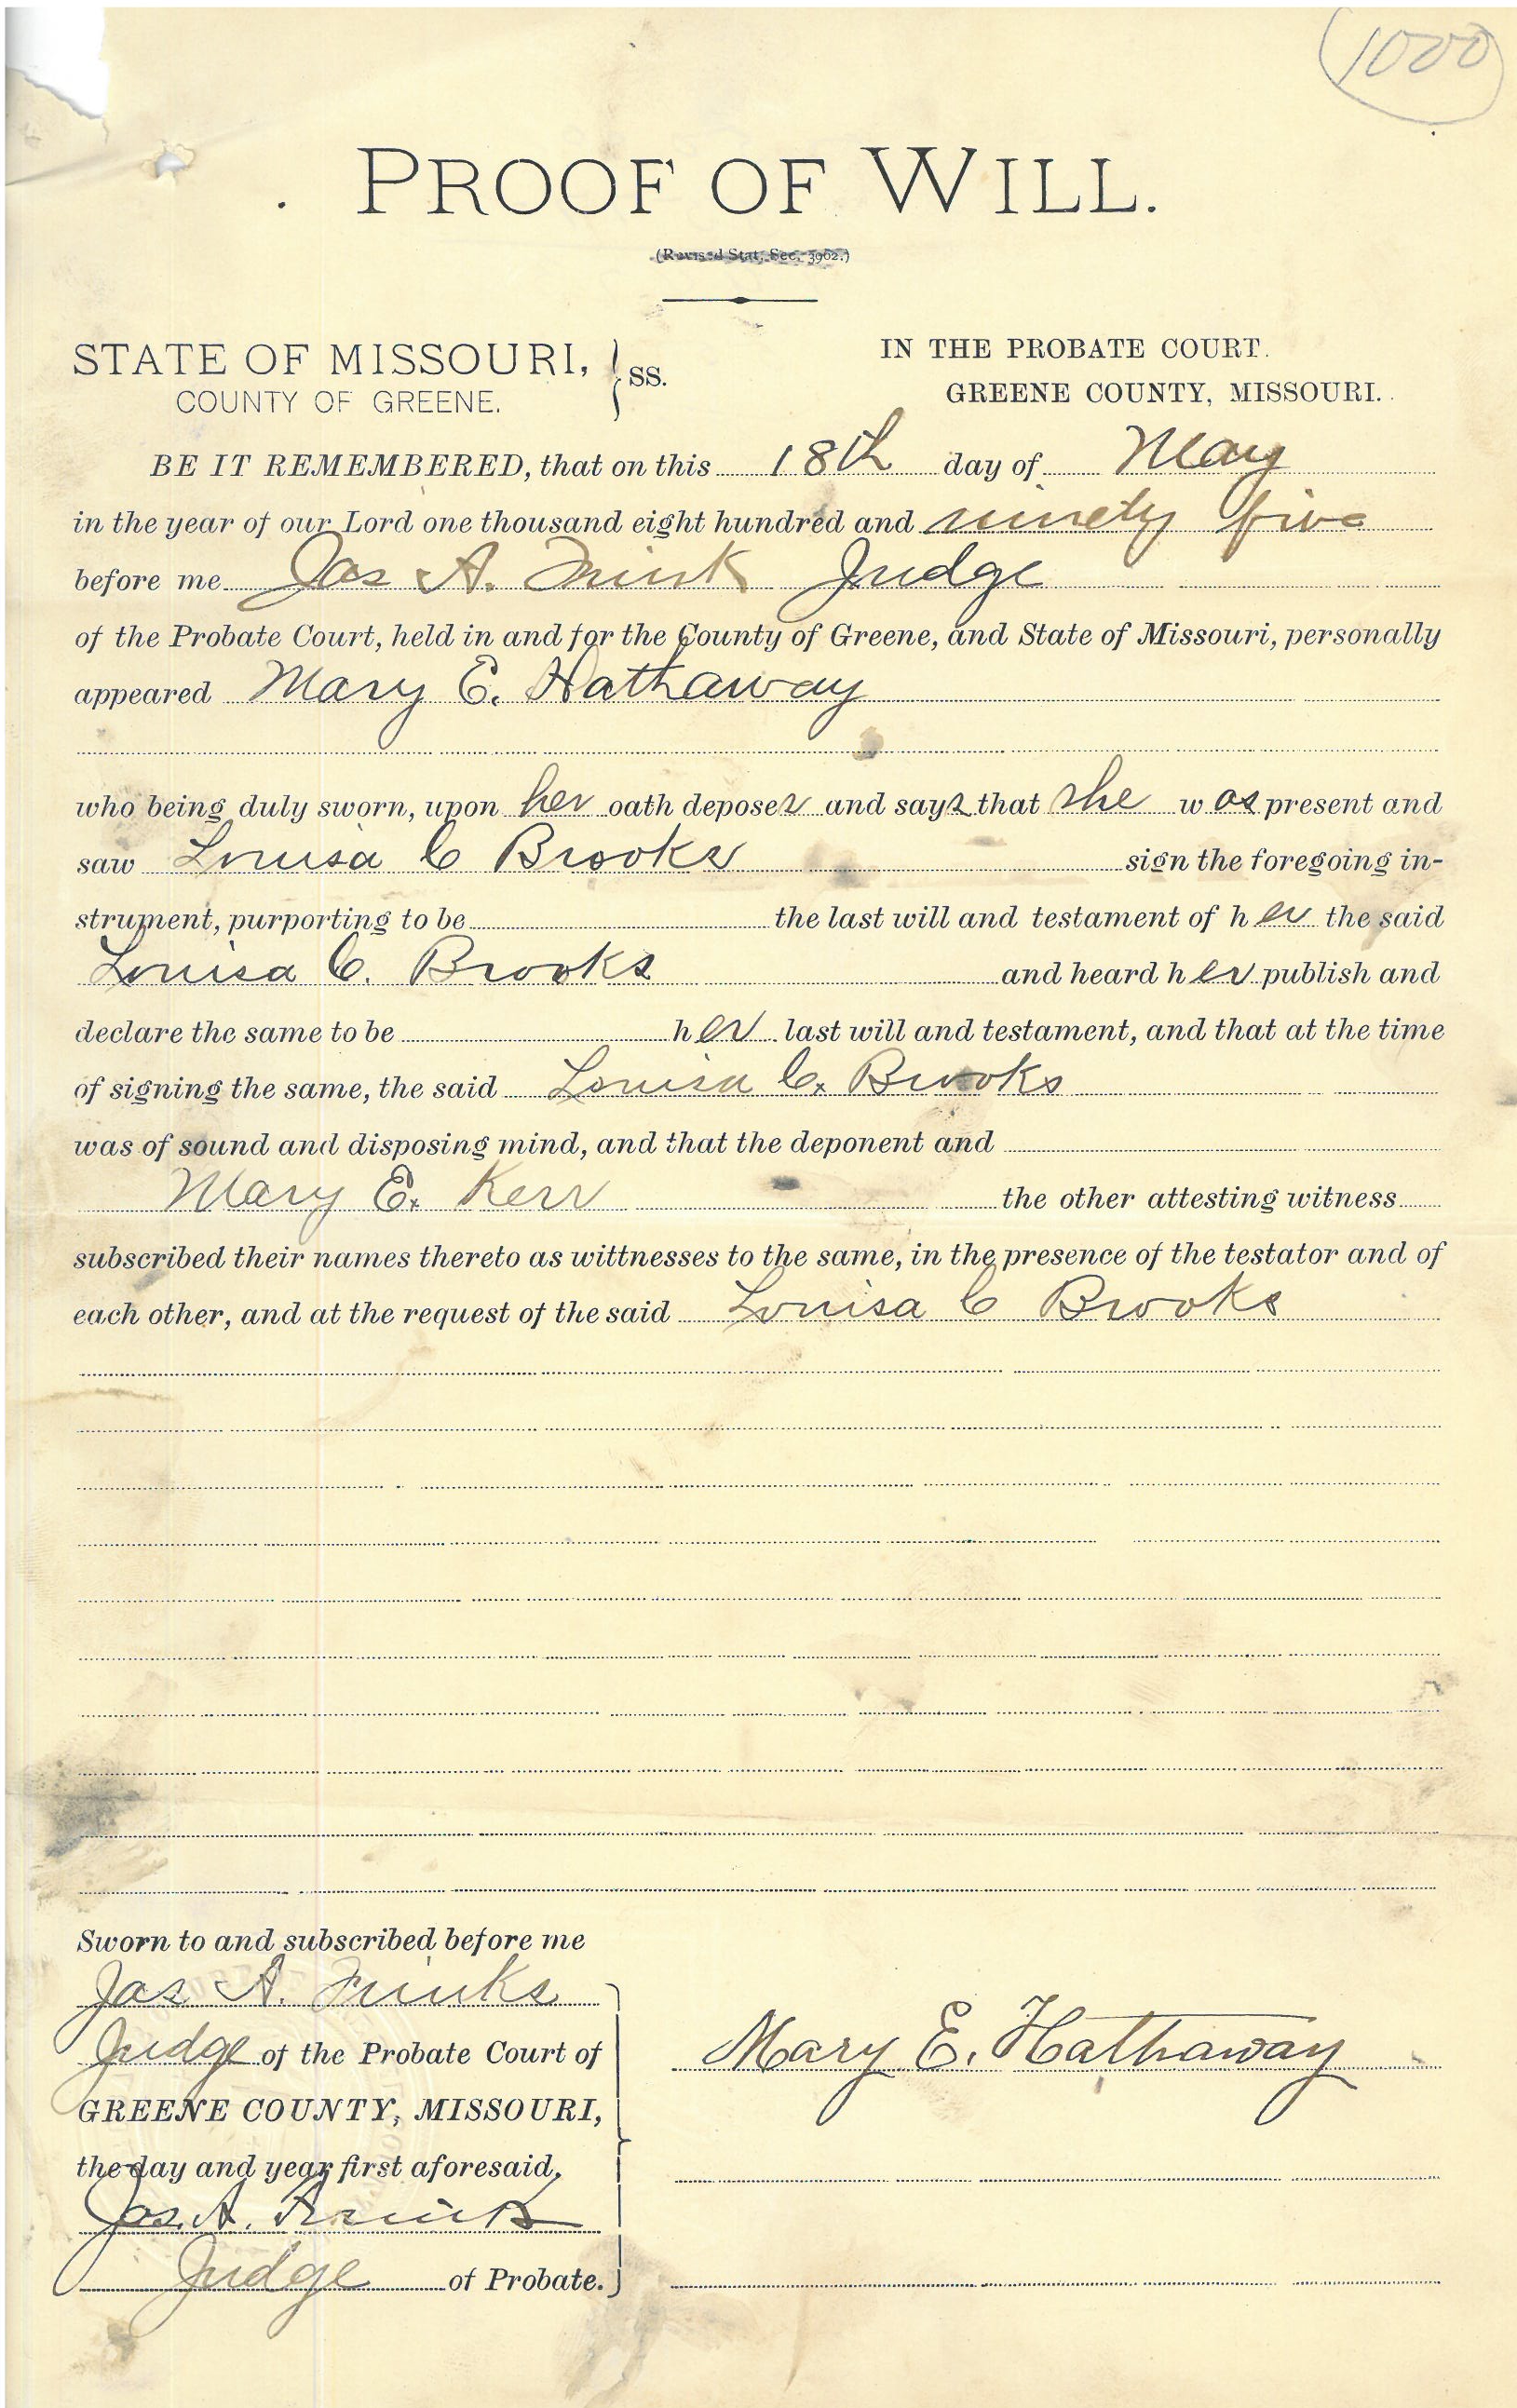 1000
PROOF OF WILL.
(Revised Stat. Sec. 3962.)
STATE OF MISSOURI, } SS.
COUNTY OF GREENE.
IN THE PROBATE COURT.
GREENE COUNTY, MISSOURI.
BE IT REMEMBERED, that on this 18th day of May
in the year of our Lord one thousand eight hundred and ninety five
before me Jas A. Judge
of the Probate Court, held in and for the County of Greene, and State of Missouri, personally
appeared Mary E. Hathaway
who being duly sworn, upon her oath deposes and says that she was present and
saw Louisa C Brooks sign the foregoing in-
strument, purporting to be the last will and testament of her the said
Louisa C. Brooks and heard her publish and
declare the same to be her last will and testament, and that at the time
of signing the same, the said Louisa C. Brooks
was of sound and disposing mind, and that the deponent and
Mary E. Kerr the other attesting witness
subscribed their names thereto as wittnesses to the same, in the presence of the testator and of
each other, and at the request of the said Louisa C Brooks
Sworn to and subscribed before me
Jas A.
Judge of the Probate Court of
GREENE COUNTY, MISSOURI,
the day and year first aforesaid,
Jas. A.
Judge of Probate.
Mary E. Hathaway